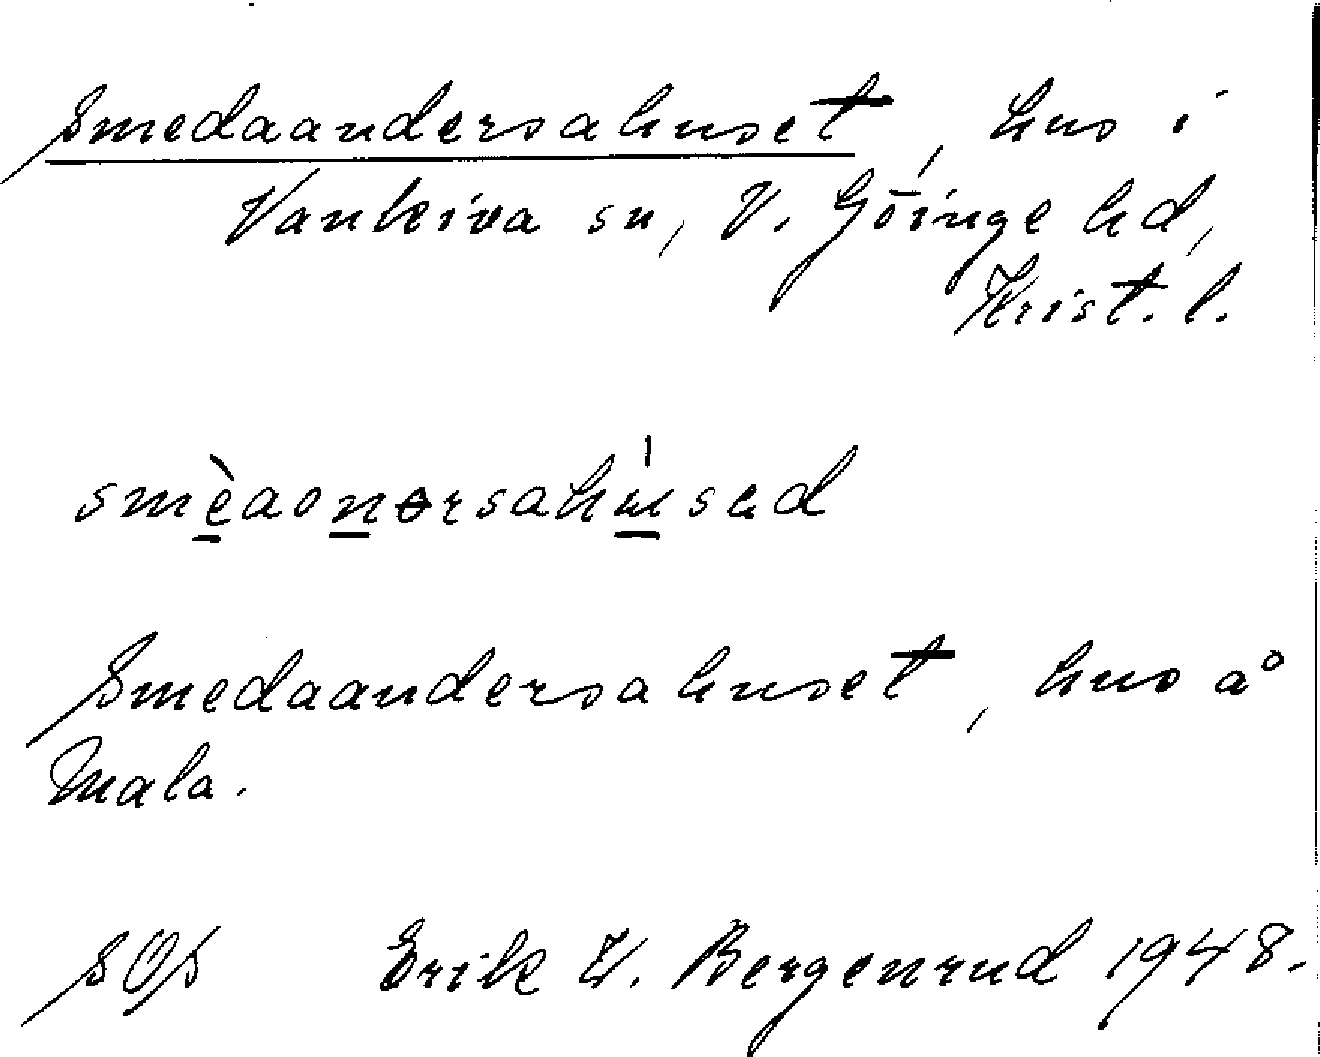 Smedaandersahuset, hus i
Vankiva sn, V. Göinge hd,
Krist. l.
smèaonɵrsahúsəd
Smedaandersahuset, hus å
Mala.
SOS Erik W. Bergenrud 1948.